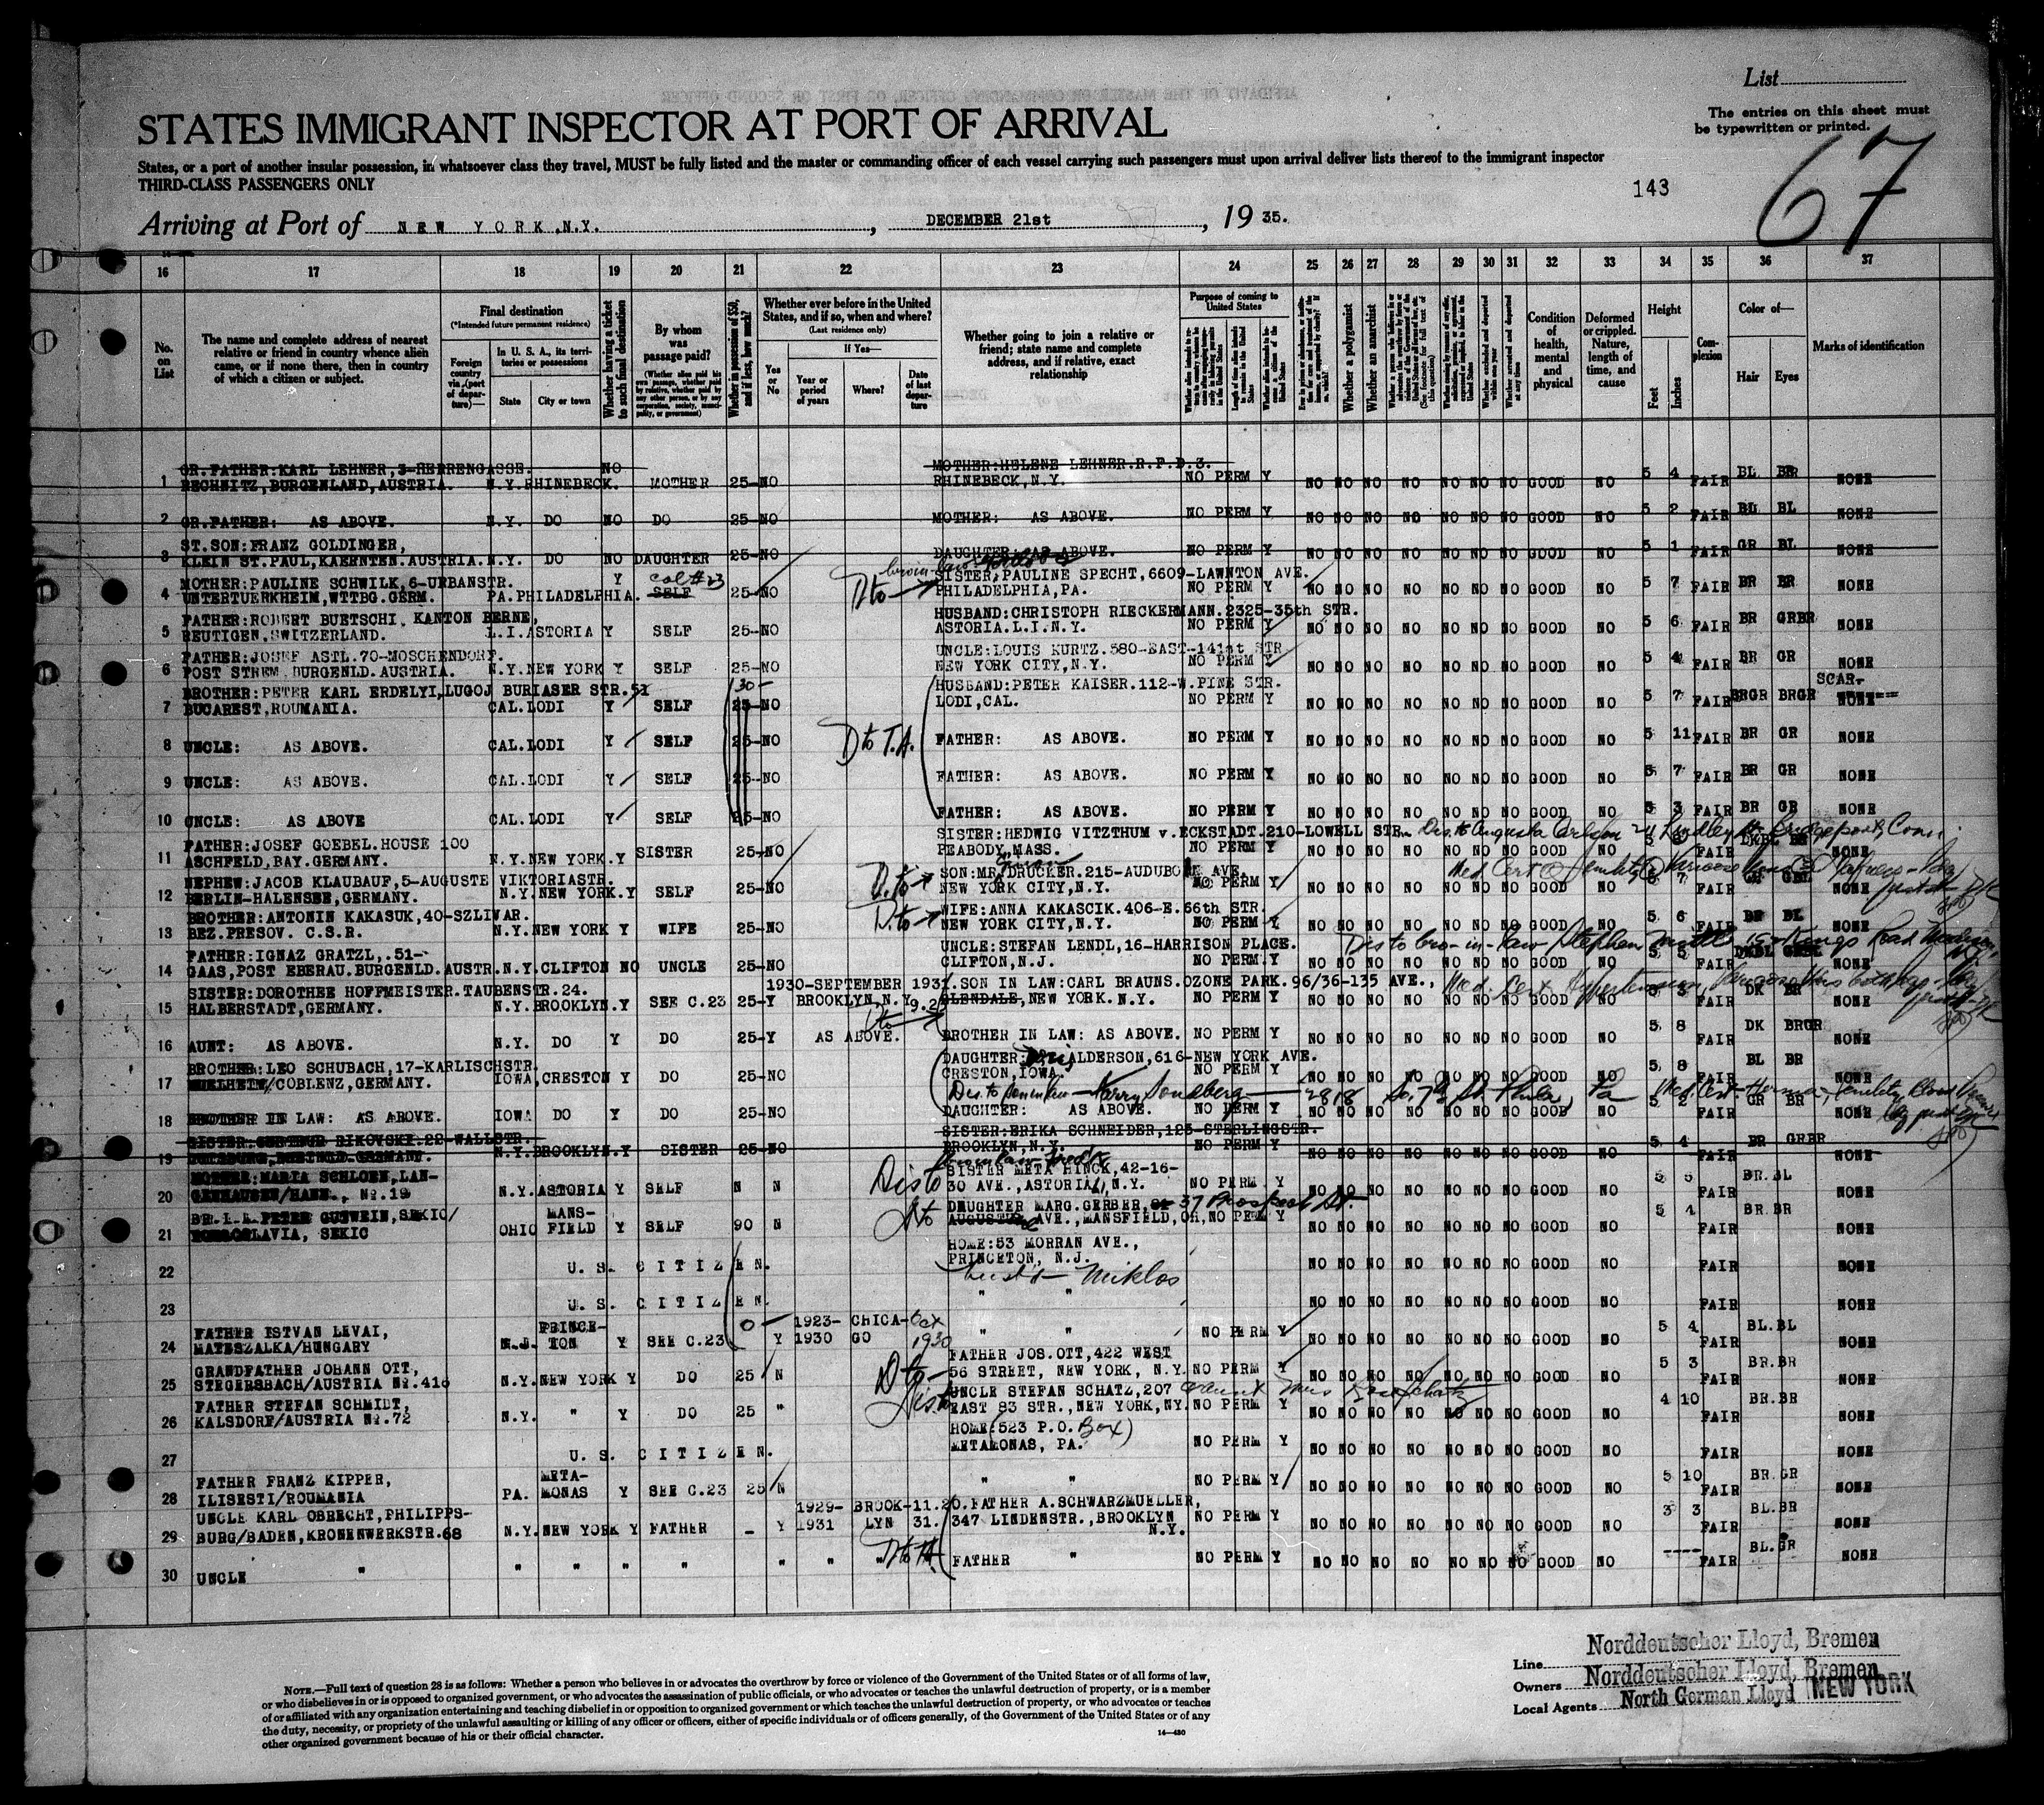 List
The entries on this sheet must
be typewritten or printed.
STATES IMMIGRANT INSPECTOR AT PORT OF ARRIVAL
67
States, or a port of another insular possession, in whatsoever class they travel, MUST be fully listed and the master or commanding officer of each vessel carrying such passengers must upon arrival deliver lists thereof to the immigrant inspector
THIRD-CLASS PASSENGERS ONLY
143
Arriving at Port of NEW YORK.N.Y. , DECEMBER 21st , 19 35.
16 17 18 19 20 21 22 23 24 25 26 27 28 29 30 31 32 33 34 35 36 37
No. on List
The name and complete address of nearest relative or friend in country whence alien came, or if none there, then in country of which a citizen or subject.
Final destination
(*Intended future permanent residence)
Foreign country via (port of departure)—
In U. S. A., its territories or possessions
State
City or town
Whether having a ticket to such final destination
By whom was passage paid?
(Whether alien paid his own passage, whether paid by relative, whether paid by any other person, or by any corporation, society, municipality, or government)
Whether in possession of $50, and if less, how much?
Whether ever before in the United States, and if so, when and where?
(Last residence only)
Yes or No
If Yes—
Year or period of years
Where?
Date of last departure
Whether going to join a relative or friend; state name and complete address, and if relative, exact relationship
Purpose of coming to United States
Whether a polygamist
Whether an anarchist
Condition of health, mental and physical
Deformed or crippled. Nature, length of time, and cause
Height
Feet
Inches
Complexion
Color of—
Hair
Eyes
Marks of identification
GR.FATHER:KARL LEHNER,3-HERRENGASSE. NO MOTHER:HELENE LEHNER.R.F.D.3.
1 RECHNITZ,BURGENLAND,AUSTRIA. N.Y. RHINEBECK. MOTHER 25-NO RHINEBECK,N.Y. NO PERM Y NO NO NO NO NO NO NO GOOD NO 5 4 FAIR BL BR NONE
2 GR.FATHER: AS ABOVE. N.Y. DO NO DO 25-NO MOTHER: AS ABOVE. NO PERM Y NO NO NO NO NO NO NO GOOD NO 5 2 FAIR BL BL NONE
ST.SON:FRANZ GOLDINGER,
3 KLEIN ST.PAUL,KAERNTEN.AUSTRIA. N.Y. DO NO DAUGHTER 25-NO DAUGHTER: AS ABOVE. NO PERM Y NO NO NO NO NO NO NO GOOD NO 5 1 FAIR GR BL NONE
MOTHER:PAULINE SCHWILK,6-URBANSTR. Y col #23 SISTER,PAULINE SPECHT,6609-LAWNTON AVE.
4 UNTERTUERKHEIM,WTTBG.GERM. PA.PHILADELPHIA. SELF 25-NO D to PHILADELPHIA,PA. NO PERM Y NO NO NO NO NO NO NO GOOD NO 5 7 FAIR BR BR NONE
FATHER:ROBERT BUETSCHI, KANTON BERNE, HUSBAND:CHRISTOPH RIECKERMANN.2325-35th STR.
5 REUTIGEN,SWITZERLAND. L.I.ASTORIA Y SELF 25-NO ASTORIA.L.I.N.Y. NO PERM Y NO NO NO NO NO NO NO GOOD NO 5 6 FAIR BR GRBR NONE
FATHER:JOSEF ASTL.70-MOSCHENDORF. UNCLE:LOUIS KURTZ.580-EAST-141st STR
6 POST STREM.BURGENLD.AUSTRIA. N.Y.NEW YORK Y SELF 25-NO NEW YORK CITY,N.Y. NO PERM Y NO NO NO NO NO NO NO GOOD NO 5 4 FAIR BR GR NONE
BROTHER:PETER KARL ERDELYI,LUGOJ BURIASER STR.51 30- HUSBAND:PETER KAISER.112-W.PINE STR. SCAR-
7 BUCAREST,ROUMANIA. CAL.LODI Y SELF 25-NO LODI,CAL. NO PERM Y NO NO NO NO NO NO NO GOOD NO 5 7 FAIR BRGR BRGR NONE
8 UNCLE: AS ABOVE. CAL.LODI Y SELF 25-NO D to T.A. FATHER: AS ABOVE. NO PERM Y NO NO NO NO NO NO NO GOOD NO 5 11 FAIR BR GR NONE
9 UNCLE: AS ABOVE. CAL.LODI Y SELF 25-NO FATHER: AS ABOVE. NO PERM Y NO NO NO NO NO NO NO GOOD NO 5 7 FAIR BR GR NONE
10 UNCLE: AS ABOVE CAL.LODI Y SELF 25-NO FATHER: AS ABOVE. NO PERM Y NO NO NO NO NO NO NO GOOD NO 5 3 FAIR BR GR NONE
FATHER:JOSEF GOEBEL.HOUSE 100 SISTER:HEDWIG VITZTHUM v.ECKSTADT.210-LOWELL STR. Dis to Augusta Carlson 24 Lindley St Bridgeport, Conn.
11 ASCHFELD,BAY.GERMANY. N.Y.NEW YORK.Y SISTER 25-NO PEABODY,MASS. NO PERM Y NO NO NO NO NO NO NO GOOD NO FAIR NONE
NEPHEW:JACOB KLAUBAUF,5-AUGUSTE VIKTORIASTR. D. to SON:MR.DRUCKER.215-AUDUBON AVE. Med Cert
12 BERLIN-HALENSEE,GERMANY. N.Y.NEW YORK.Y SELF 25-NO NEW YORK CITY,N.Y. NO PERM Y NO NO NO NO NO NO NO GOOD NO FAIR NONE
BROTHER:ANTONIN KAKASUK,40-SZLIVAR. D. to WIFE:ANNA KAKASCIK.406-E.66th STR.
13 BEZ.PRESOV. C.S.R. N.Y.NEW YORK Y WIFE 25-NO NEW YORK CITY,N.Y. NO PERM Y NO NO NO NO NO NO NO GOOD NO 5 6 FAIR BR BL NONE
FATHER:IGNAZ GRATZL,.51- UNCLE:STEFAN LENDL,16-HARRISON PLACE. Dis to bro-in-law Stephen Kings Road Madison,
14 GAAS,POST EBERAU.BURGENLD.AUSTR. N.Y.CLIFTON NO UNCLE 25-NO CLIFTON,N.J. NO PERM.Y NO NO NO NO NO NO NO GOOD NO 5 5 FAIR NONE
SISTER:DOROTHEE HOFFMEISTER.TAUBENSTR.24. 1930-SEPTEMBER 1931. SON IN LAW:CARL BRAUNS.OZONE PARK.96/36-135 AVE., Med. Cert Hypertension,
15 HALBERSTADT,GERMANY. N.Y.BROOKLYN.Y SEE C.23 25-Y BROOKLYN,N.Y. GLENDALE,NEW YORK.N.Y. NO PERM Y NO NO NO NO NO NO NO GOOD NO FAIR DK BR NONE
16 AUNT: AS ABOVE. N.Y. DO Y DO 25-Y AS ABOVE. D to BROTHER IN LAW: AS ABOVE. NO PERM Y NO NO NO NO NO NO NO GOOD NO 5 8 FAIR DK BRGR NONE
BROTHER:LEO SCHUBACH,17-KARLISCHSTR. DAUGHTER: ALDERSON,616-NEW YORK AVE.
17 MUELHEIM/COBLENZ,GERMANY. IOWA,CRESTON Y DO 25-NO CRESTON,IOWA. NO PERM Y NO NO NO NO NO NO NO GOOD NO 5 8 FAIR BL BR NONE
Dis to son in law - Harry Sondberg - 2818 So. 7th St. Phila, Pa Med. Cert - Hernia, senility
18 BROTHER IN LAW: AS ABOVE. IOWA DO Y DO 25-NO DAUGHTER: AS ABOVE. NO PERM Y NO NO NO NO NO NO NO GOOD NO 5 2 FAIR GR BR NONE
SISTER:GERTRUD RIKOVSKI.22-WALLSTR. SISTER:ERIKA SCHNEIDER,125-STERLINGSTR.
19 N.Y.BROOKLYN.Y SISTER 25-NO BROOKLYN,N.Y. NO PERM Y NO NO NO NO NO NO NO GOOD NO 5 4 FAIR BR GRBR NONE
MOTHER:MARIA SCHLOEN,LAN- Dis to SISTER META HINCK,42-16-
20 GENHAUSEN/HANN., No.19 N.Y. ASTORIA Y SELF N N 30 AVE.,ASTORIA,N.Y. NO PERM Y NO NO NO NO NO NO NO GOOD NO 5 5 FAIR BR.BL NONE
BR.I.L.PETER GUTWEIN,SEKIC/ MANS- D to DAUGHTER MARG.GERBER, 37 Prospect St.
21 YOUGOSLAVIA, SEKIC OHIO FIELD Y SELF 90 N AUGUSTINE AVE.,MANSFIELD,OH. NO PERM Y NO NO NO NO NO NO NO GOOD NO 5 4 FAIR BR.BR NONE
HOME:53 MORRAN AVE.,
22 U. S. CITIZEN. PRINCETON, N.J. NO NO NO NO NO NO NO GOOD NO FAIR NONE
husb'd - Miklos
23 U. S. CITIZEN. " " NO NO NO NO NO NO NO GOOD NO FAIR NONE
FATHER ISTVAN LEVAI, PRINCE- 0- 1923- CHICA- Oct
24 MATESZALKA/HUNGARY N.J. TON Y SEE C.23 Y 1930 GO 1930 " " NO PERM Y NO NO NO NO NO NO NO GOOD NO 5 4 FAIR BL.BL NONE
GRANDFATHER JOHANN OTT, D to FATHER JOS.OTT,422 WEST
25 STEGERSBACH/AUSTRIA No.416 N.Y.NEW YORK Y DO 25 N 56 STREET, NEW YORK, N.Y. NO PERM Y NO NO NO NO NO NO NO GOOD NO 5 3 FAIR BR.BR NONE
FATHER STEFAN SCHMIDT, Dis to UNCLE STEFAN SCHATZ,207
26 KALSDORF/AUSTRIA No.72 N.Y. " Y DO 25 " EAST 83 STR.,NEW YORK,NY. NO PERM Y NO NO NO NO NO NO NO GOOD NO 4 10 FAIR BR.BR NONE
HOME(523 P.O. Box)
27 U. S. CITIZEN. METAMONAS, PA. NO PERM Y NO NO NO NO NO NO NO GOOD NO FAIR NONE
FATHER FRANZ KIPPER, META-
28 ILISESTI/ROUMANIA PA. MONAS Y SEE C.23 25 N " " NO PERM Y NO NO NO NO NO NO NO GOOD NO 5 10 FAIR BR.GR NONE
UNCLE KARL OBRECHT,PHILIPPS- 1929- BROOK- 11.20. FATHER A.SCHWARZMUELLER,
29 BURG/BADEN,KRONENWERKSTR.68 N.Y.NEW YORK Y FATHER - Y 1931 LYN 31. 347 LINDENSTR.,BROOKLYN N.Y. NO PERM Y NO NO NO NO NO NO NO GOOD NO 3 3 FAIR BL.BR NONE
30 UNCLE " " " " " " " " FATHER " NO PERM Y NO NO NO NO NO NO NO GOOD NO ---- FAIR BL.GR NONE
NOTE.—Full text of question 28 is as follows: Whether a person who believes in or advocates the overthrow by force or violence of the Government of the United States or of all forms of law,
or who disbelieves in or is opposed to organized government, or who advocates the assassination of public officials, or who advocates or teaches the unlawful destruction of property, or is a member
of or affiliated with any organization entertaining and teaching disbelief in or opposition to organized government or which teaches the unlawful destruction of property, or who advocates or teaches
the duty, necessity, or propriety of the unlawful assaulting or killing of any officer or officers, either of specific individuals or of officers generally, of the Government of the United States or of any
other organized government because of his or their official character.
14—430
Norddeutscher Lloyd, Bremen
Line
Owners Norddeutscher Lloyd, Bremen
Local Agents North German Lloyd NEW YORK